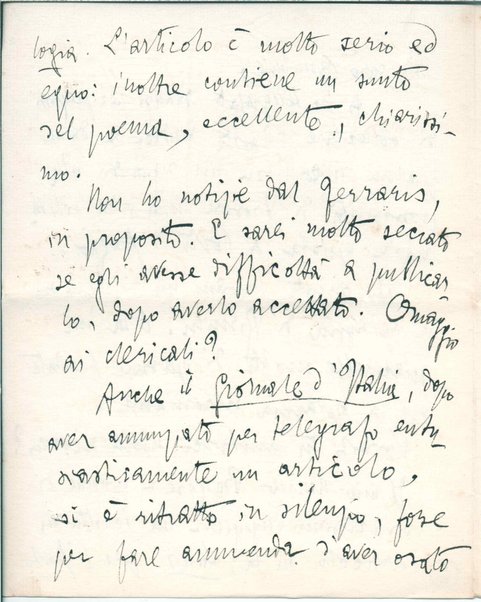 logia. L'articolo è molto serio ed
equo: inoltre contiene un sunto
del poema, eccellente, chiarissi-
mo.
Non ho notizie dal Ferraris,
in proposito. E sarei molto seccato
se egli avesse difficoltà a publicar
lo, dopo averlo accettato. Omaggio
ai clericali?
Anche il Giornale d'Italia, dopo
aver annunziato per telegrafo entu
siasticamente un articolo,
si è ritratto in silenzio, forse
per fare ammenda d'aver osato